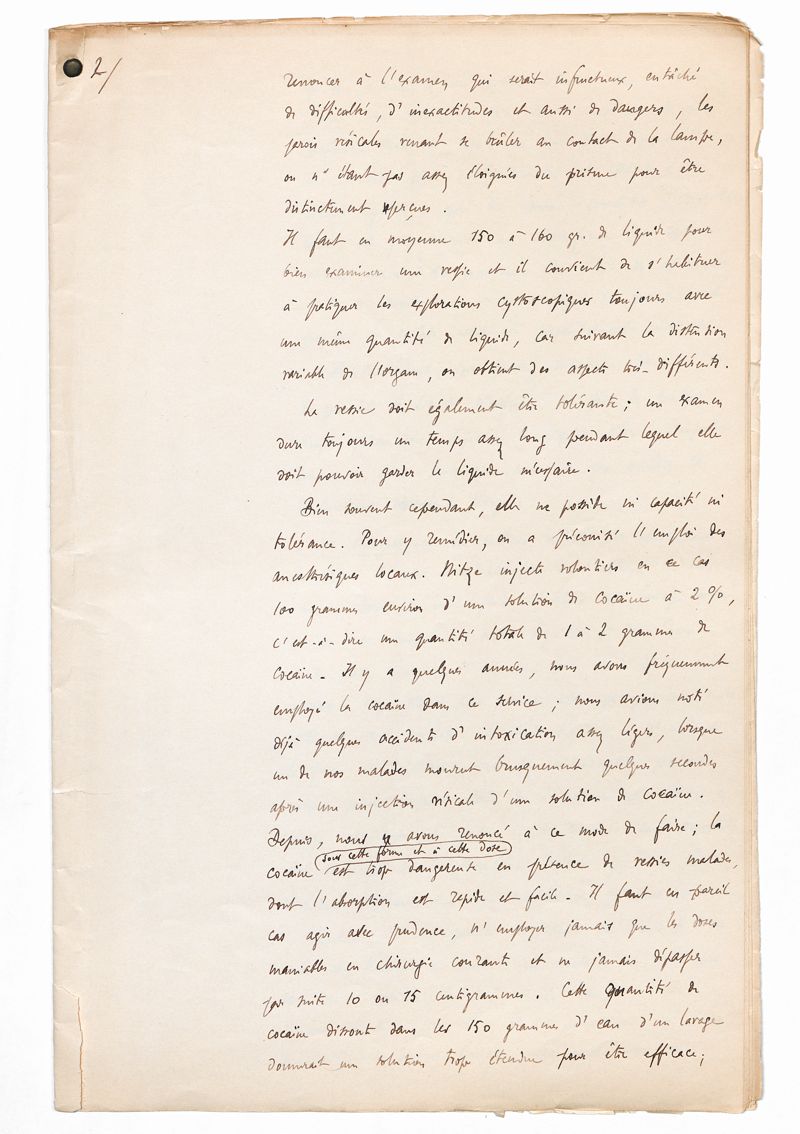 2/
renoncer à l'examen qui serait infructueux, entâché
de difficultés, d'inexactitudes et aussi de dangers, les
parois vésicales venant se brûler au contact de la lampe,
ou n'étant pas assez éloignées du prisme pour être
distinctement aperçues.
Il faut en moyenne 150 à 160 gr. de liquide pour
bien examiner une vessie et il convient de s'habituer
à pratiquer les explorations cystoscopiques toujours avec
une même quantité de liquide, car suivant la distension
variable de l'organe, on obtient des aspects très-différents.
La vessie doit également être tolérante ; un examen
dure toujours un temps assez long pendant lequel elle
doit pouvoir garder le liquide nécessaire.
Bien souvent cependant, elle ne possède ni capacité ni
tolérance. Pour y remédier, on a préconisé l'emploi des
anesthésiques locaux. Nitze injecte volontiers en ce cas
100 grammes environ d'une solution de cocaïne à 2 %,
c'est-à-dire une quantité totale de 1 à 2 grammes de
cocaïne. Il y a quelques années, nous avons fréquemment
employé la cocaïne dans ce service ; nous avions noté
déjà quelques accidents d'intoxication assez légers, lorsque
un de nos malades mourut brusquement quelques secondes
après une injection vésicale d'une solution de cocaïne.
Depuis, nous avons renoncé à ce mode de faire ; la
sous cette forme et à cette dose
cocaïne est trop dangereuse en présence de vessies malades,
dont l'absorption est rapide et facile. Il faut en pareil
cas agir avec prudence, n'employer jamais que les doses
maniables en chirurgie courante et ne jamais dépasser
par suite 10 ou 15 centigrammes. Cette quantité de
cocaïne dissoute dans les 150 grammes d'eau d'un lavage
donnerait une solution trop étendue pour être efficace ;